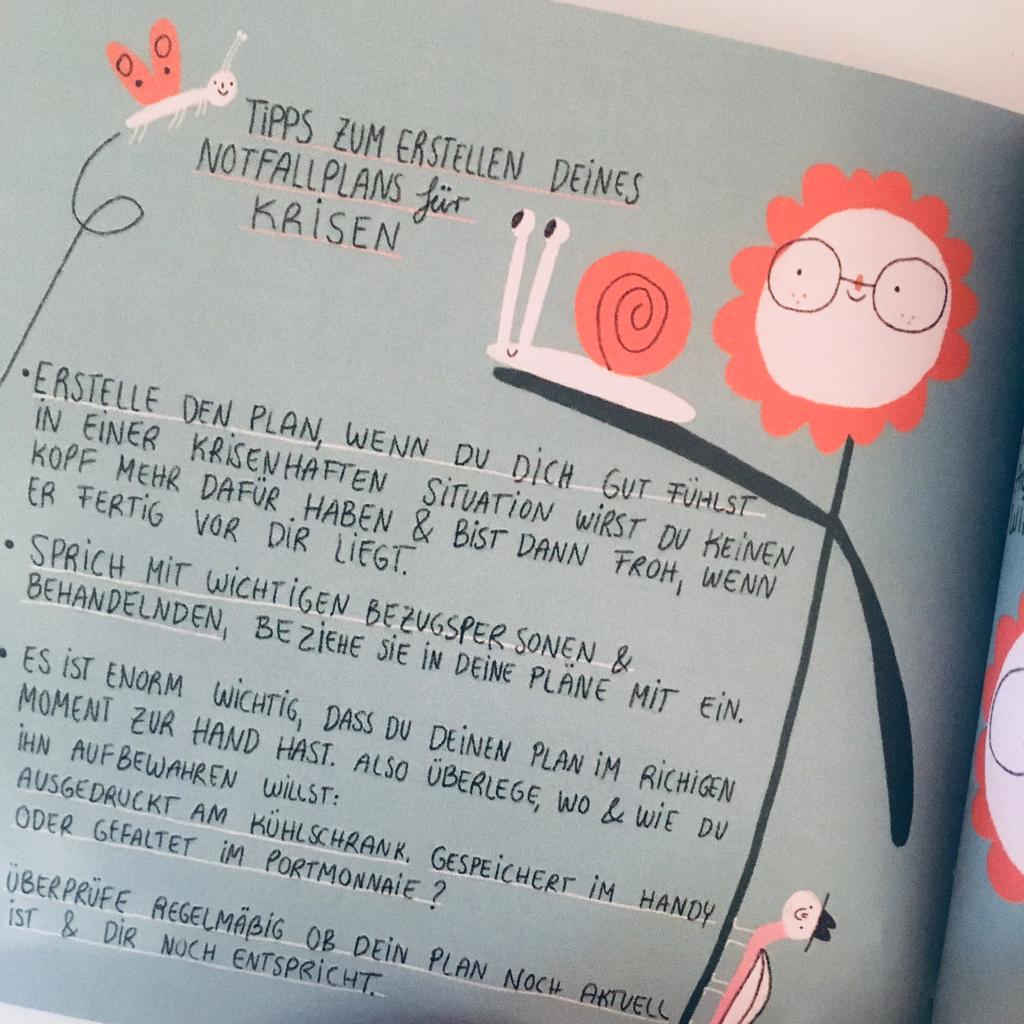 TIPPS ZUM ERSTELLEN DEINES
NOTFALLPLANS für
KRISEN
• ERSTELLE DEN PLAN, WENN DU DICH GUT FÜHLST
IN EINER KRISENHAFTEN SITUATION WIRST DU KEINEN
KOPF MEHR DAFÜR HABEN & BIST DANN FROH, WENN
ER FERTIG VOR DIR LIEGT.
• SPRICH MIT WICHTIGEN BEZUGSPERSONEN &
BEHANDELNDEN, BEZIEHE SIE IN DEINE PLÄNE MIT EIN.
• ES IST ENORM WICHTIG, DASS DU DEINEN PLAN IM RICHIGEN
MOMENT ZUR HAND HAST. ALSO ÜBERLEGE, WO & WIE DU
IHN AUFBEWAHREN WILLST:
AUSGEDRUCKT AM KÜHLSCHRANK, GESPEICHERT IM HANDY
ODER GEFALTET IM PORTMONNAIE?
ÜBERPRÜFE REGELMÄßIG OB DEIN PLAN NOCH AKTUELL
IST & DIR NOCH ENTSPRICHT.